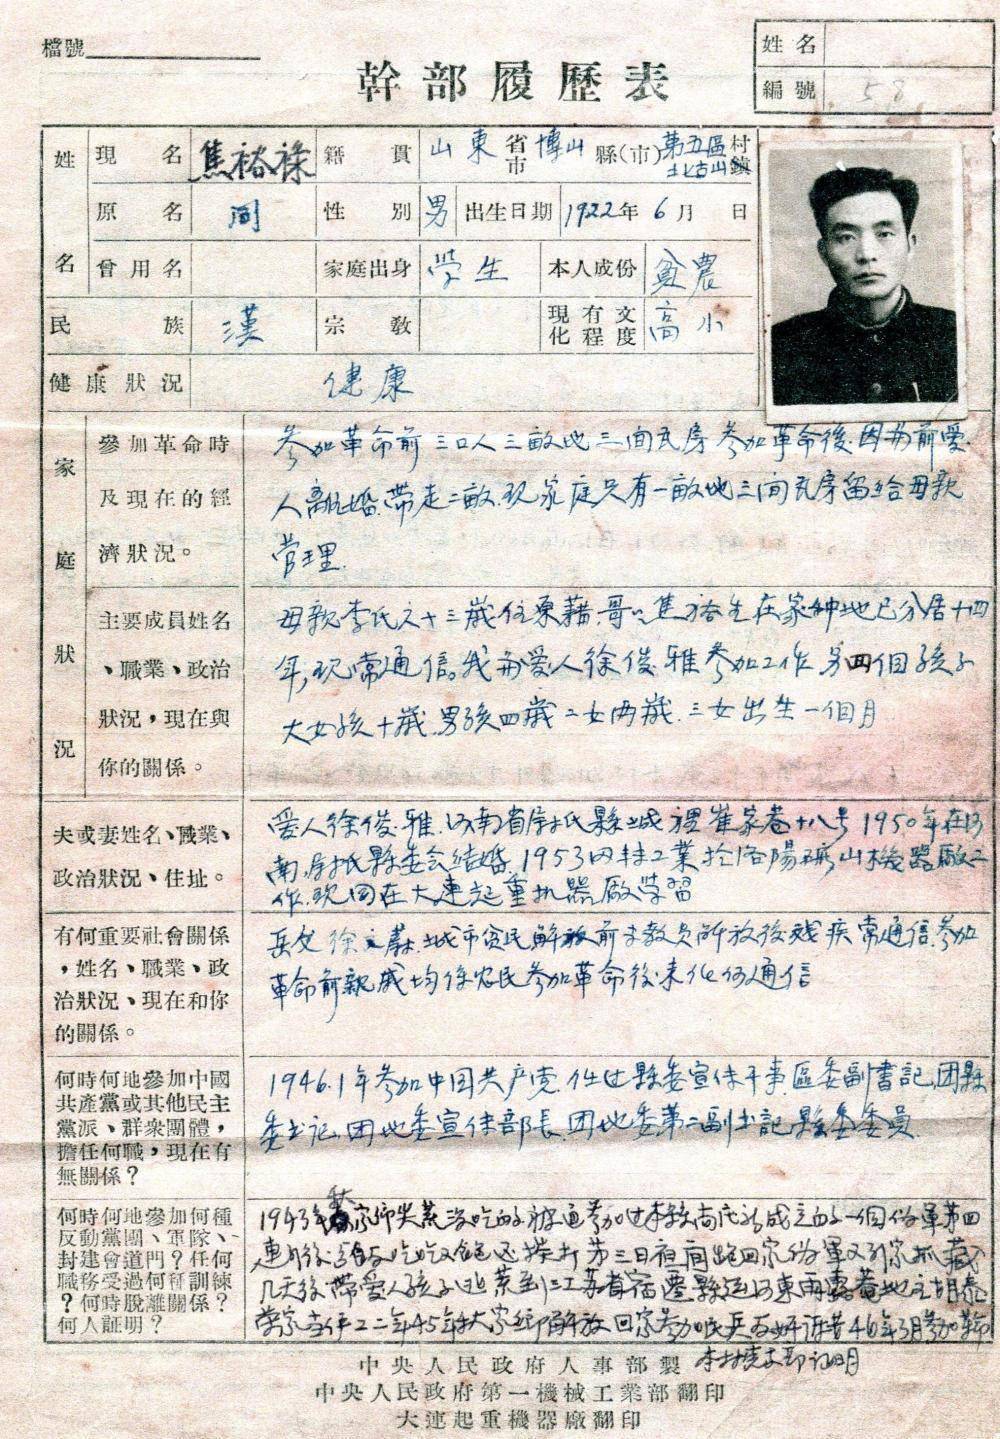 檔號
姓名
幹部履歷表
編號 58
姓名
現名 焦裕祿 籍貫 山東省市 博山縣(市) 第五區北古山村鎮
原名 同 性別 男 出生日期 1922年6月 日
曾用名 家庭出身 學生 本人成份 貧農
民族 漢 宗教 現有文化程度 高小
健康狀況 健康
家庭狀況
參加革命時
及現在的經
濟狀況。
參加革命前三口人三畝地三间瓦房參加革命後.因為前爱
人離婚.帶走二畝.现家庭只有一畝地三间瓦房留给母親
管理.
主要成員姓名
、職業、政治
狀況，現在與
你的關係。
母親李氏六十三歲住原籍.哥哥焦裕生在家种地已分居十四
年,现常通信。我和爱人徐俊雅參加工作.另四個孩子
大女孩十歲.男孩四歲二女两歲.三女出生一個月
夫或妻姓名、職業、
政治狀況、住址。
爱人徐俊雅.河南省尉氏縣城裡崔家巷十八号1950年在河
南尉氏縣委会结婚.1953因轉工業於洛陽礦山機器廠工
作.现同在大連起重机器廠学習
有何重要社會關係
，姓名、職業、政
治狀況、現在和你
的關係。
岳父徐 蔚.城市贫民解放前 教員解放後残疾常通信.參加
革命前親戚均係农民參加革命後未 通信
何時何地參加中國
共產黨或其他民主
黨派、群衆團體，
擔任何職，現在有
無關係？
1946.1年參加中国共产党.任过縣委宣传干事.區委副書記.团縣
委书记.团地委宣传部長.团地委第二副书記.縣委委員.
何時何地參加何種
反動黨團、軍隊、
封建會道門？任何
職務受過何種訓練
？何時脫離關係？
何人証明？
1943年秋家 参加过本縣 成立的一個伪軍第四
連 吃 挨打.第三日夜间跑回家伪軍又到家抓.藏
几天後.帶爱人孩子逃荒到江苏省宿遷縣 河東南 地主胡
家 二年45年 家 解放回家参加民兵 46年3月參加革命
証明
中央人民政府人事部製
中央人民政府第一機械工業部翻印
大連起重機器廠翻印